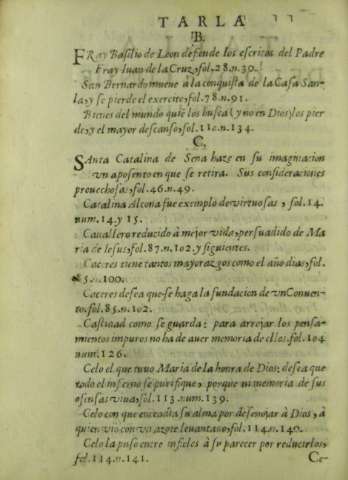 TABLA
B.
FRay Basilio de Leon defende los escritos del Padre
Fray Iuan de la Cruz, fol. 28. n. 30.
San Bernardo mueve à la conquista de la Casa San-
ta, y se pierde el exercito, fol. 78. n. 91.
Bienes del mundo quiē los busca (y no en Dios) los pier
de, y el mayor descanso, fol. 110. n. 134.
C.
SAnta Catalina de Sena haze en su imaginacion
vn aposento en que se retira. Sus consideraciones
prouechosas, fol. 46. n. 49.
Catalina Alcona fue exemplo de virtuosas, fol. 14.
num. 14. y 15.
Cauallero reducido à mejor vida, persuadido de Ma
ria de Iesus, fol. 87. n. 102. y siguientes.
Caceres tiene tantos mayorazgos como el año dias, fol.
85. n. 100.
Caceres desea que se haga la fundacion de vn Conuen-
to. fol. 85. n. 102.
Castidad como se guarda: para arrojar los pensa-
mientos impuros no ha de auer memoria de ellos. fol. 104
num. 126.
Celo el que tuuo Maria de la honra de Dios: desea que
todo el infierno se purifique, porque ni memoria de sus
ofensas viua, fol. 113. num. 139.
Celo con que encendia su alma por desenojar à Dios, à
quien vio con vn azote leuantado, fol. 114. n. 140.
Celo la puso entre infieles à su parecer por reducirlos,
fol. 114. n. 141.
Ce-